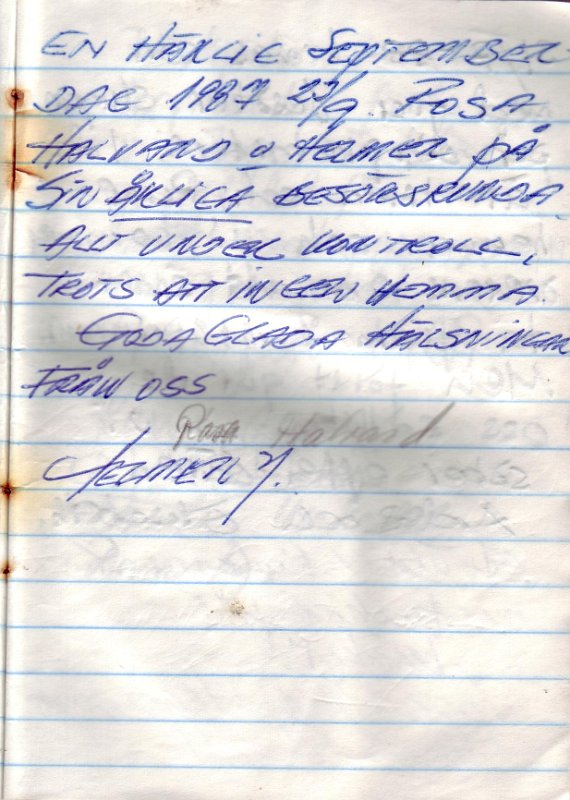 EN HÄRLIG SEPTEMBER-
DAG 1987 27/9. ROSA,
HALVARD o HELMER på
SIN ÅRLIGA BESÖKSRUNDA.
ALLT UNDER KONTROLL,
TROTS ATT INGEN HEMMA.
GODA GLADA HÄLSNINGAR
FRÅN OSS
Rosa Halvard
HELMER